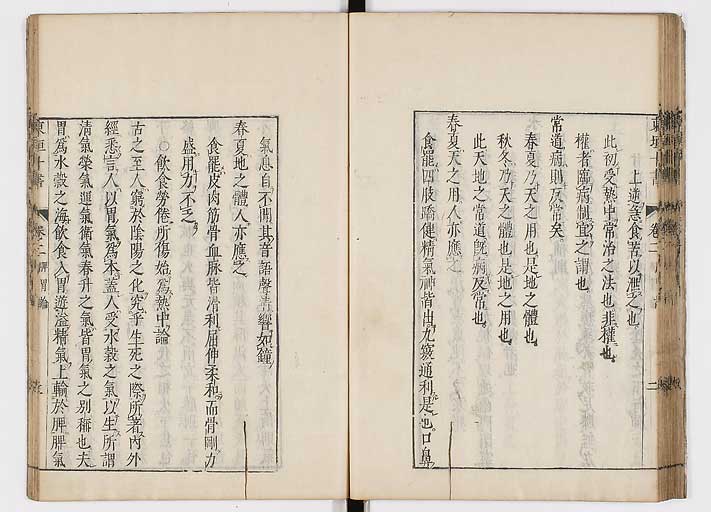 上逆急食苦以泄之也
此初受熱中常治之法也非權也
權者臨病制宜之謂也
常道病則反常矣
春夏乃天之用也是地之體也
秋冬乃天之體也是地之用也
此天地之常道既病反常也
春夏天之用人亦應之
食罷四肢矯健精氣神皆出九竅通利是也口鼻
氣息自不聞其音語聲清響如鐘
春夏地之體人亦應之
食罷皮肉筋骨血脉皆滑利屈伸柔和而骨剛力
盛用力不乏
○飲食勞倦所傷始為熱中論
古之至人窮於陰陽之化究乎生死之際所著內外
經悉言人以胃氣為本蓋人受水穀之氣以生所謂
清氣榮氣運氣衛氣春升之氣皆胃氣之別稱也夫
胃為水穀之海飲食入胃遊溢精氣上輸於脾脾氣
東垣十書
卷二
脾胃論